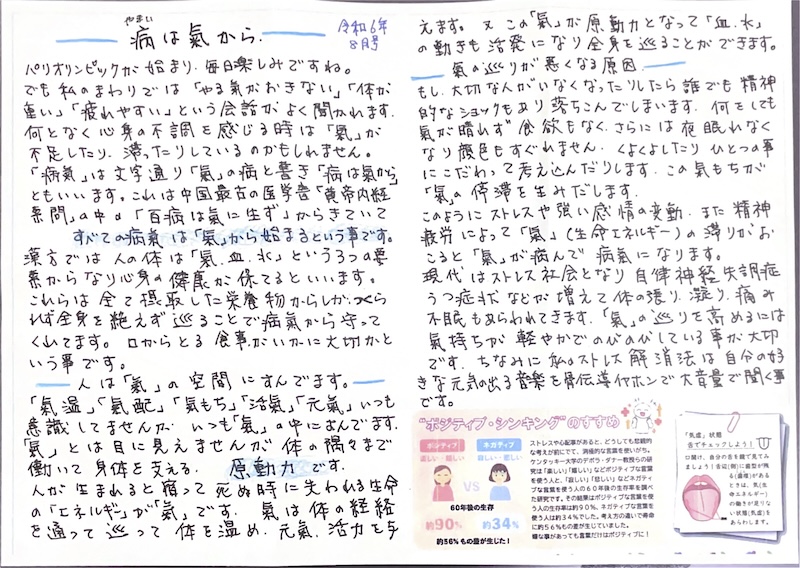 やまい
病は氣から.
令和6年
8月号
パリオリンピックが始まり.毎日楽しみですね。
でも私のまわりでは「やる氣がおきない」「体が
重い」「疲れやすい」という会話がよく聞かれます.
何となく心身の不調を感じる時は「氣」が
不足したり、滞ったりしているのかもしれません。
「病氣」は文字通り「氣」の病と書き「病は氣から」
ともいいます。これは中国最古の医学書「黄帝内経
素問」の中の「百病は氣に生ず」からきていて
すべての病氣は「氣」から始まるという事です。
漢方では人の体は「氣.血.水」という3つの要
素からなり心身の健康が保てるといいます。
これらは全て摂取した栄養物からしかつくら
れず全身を絶えず巡ることで病氣から守って
くれてます。口からとる食事がいかに大切かと
いう事です。
人は「氣」の空間にすんでます。
「氣温」「氣配」「氣もち」「活氣」「元氣」いつも
意識してませんがいつも「氣」の中におよんでます.
「氣」とは目に見えませんが体の隅々まで
働いて身体を支える 原動力です.
人が生まれると宿って死ぬ時に失われる生命
の「エネルギー」が「氣」です. 氣は体の経絡
を通って巡って体を温め、元氣、活力を与
えます。又この「氣」が原動力となって「血.水」
の動きも活発になり全身を巡ることができます。
氣の巡りが悪くなる原因
もし、大切な人がいなくなったりしたら誰でも精神
的なショックもあり落ちこんでしまいます. 何をしても
氣が晴れず食欲もなく、さらには夜眠れなく
なり顔色もすぐれません. くよくよしたりひとつの事
にこだわって考え込んだりします. この氣もちが
「氣」の停滞を生みだします.
このようにストレスや強い感情の変動、また精神
疲労によって「氣」(生命エネルギー)の滞りがお
こると「氣」が病んで病氣になります。
現代はストレス社会となり自律神経失調症
うつ症状などが増えて体の張り、凝り、痛み
不眠もあらわれてきます.「氣」の巡りを高めるには
氣持ちが軽やかでのびのびしている事が大切
です. ちなみに私のストレス解消法は自分の好
きな元氣の出る音楽を骨伝導イヤホンで大音量で聞く事
です。
"ポジティブ・シンキング"のすすめ
ポジティブ
楽しい・嬉しい
ネガティブ
寂しい・悲しい
VS
60年後の生存
約90%
約34%
約56%もの差が生じた!
ストレスや心配事があると、どうしても悲観的
な考えが前にでて、消極的な言葉を使いがち。
ケンタッキー大学のデボラ・ダナー教授らの研
究は「楽しい」「嬉しい」などポジティブな言葉
を使う人と、「寂しい」「悲しい」などネガティ
ブな言葉を使う人の60年後の生存率を調べ
た研究です。その結果はポジティブな言葉を使
う人の生存率は約90%、ネガティブな言葉を
使う人は約34%でした。考え方の違いで寿命
に約56%もの差が生じていました。
嫌な事があっても言葉だけはポジティブに!
「気虚」状態
舌でチェックしよう!
口開け、自分の舌を鏡で見てみ
ましょう!舌辺(側)に歯型が残
る(歯痕)がある
ときは、気(生
命エネルギー)
の働きが足りな
い状態(気虚)を
あらわします。